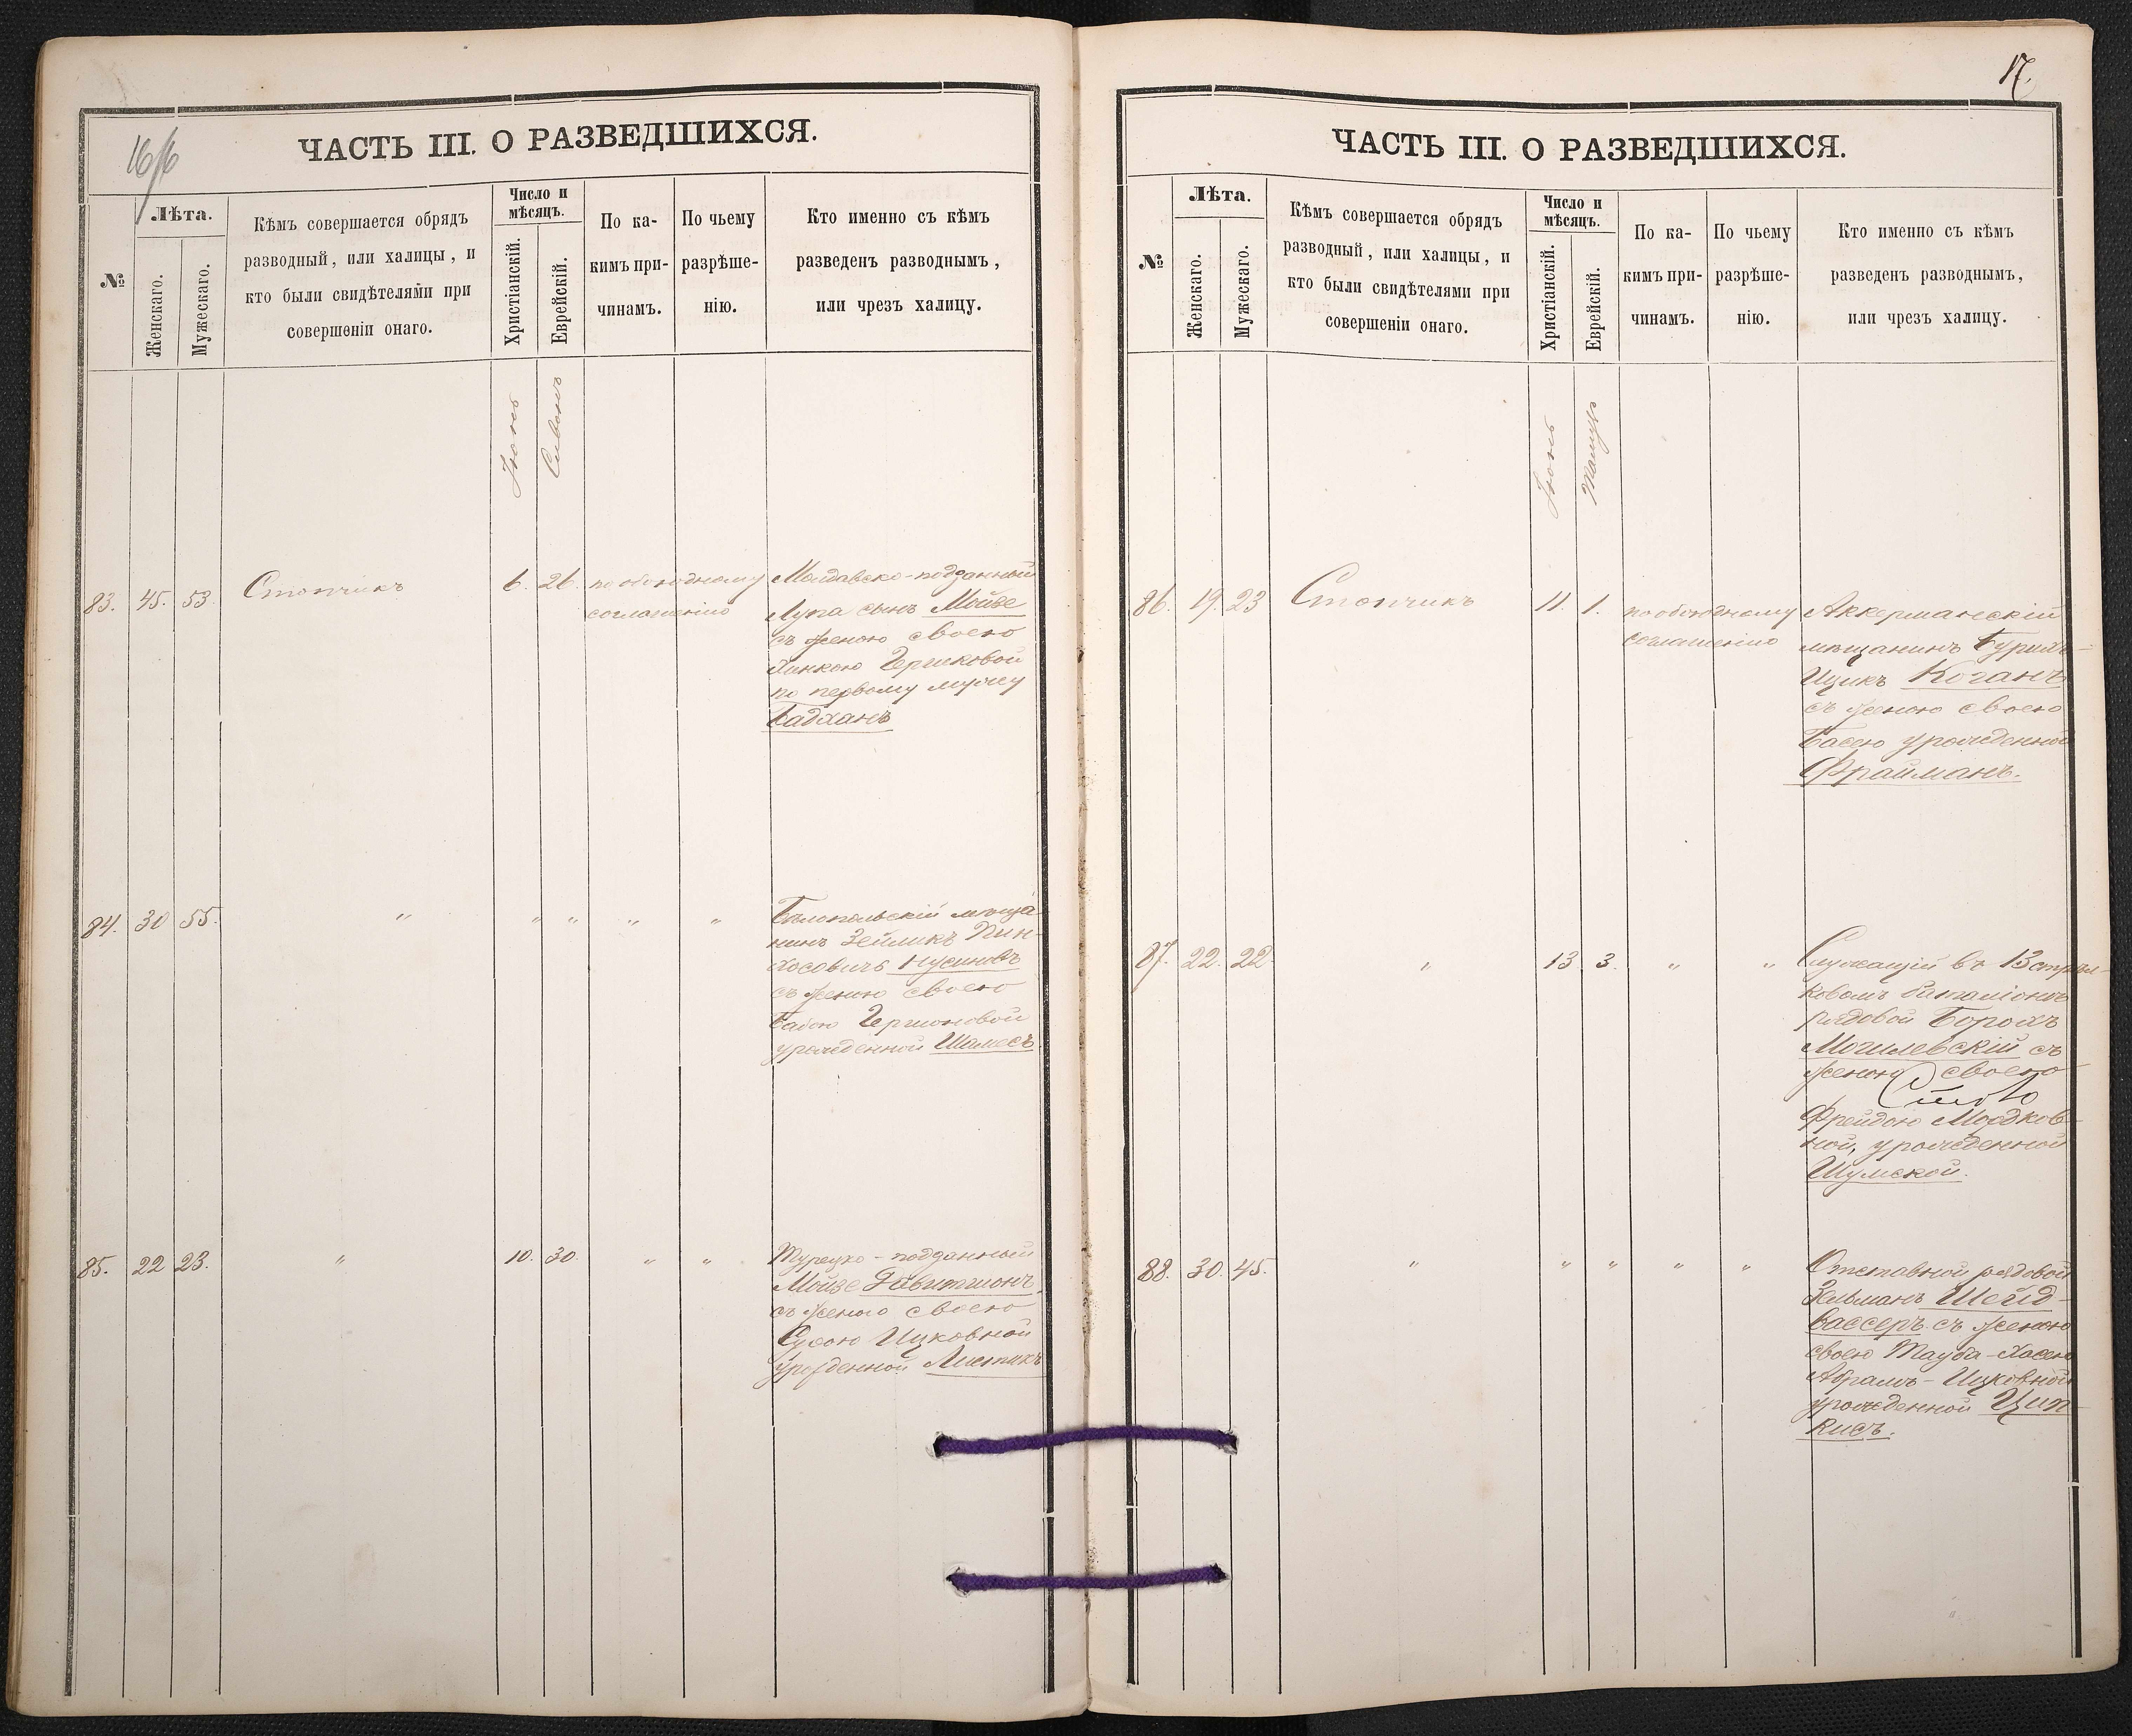 16/6
ЧАСТЬ III. О РАЗВЕДШИХСЯ.
№
Лѣта.
Женскаго.
Мужескаго.
Кѣмъ совершается обрядъ
разводный, или халицы, и
кто были свидѣтелями при
совершеніи онаго.
Число и
мѣсяцъ.
Христіанскій.
Еврейскій.
По ка-
кимъ при-
чинамъ.
По чьему
разрѣше-
нію.
Кто именно съ кѣмъ
разведенъ разводнымъ,
или чрезъ халицу.
Іюнь
Сивонъ
83. 45. 53. Стопчикъ 6. 26. по обоюдному
соглашенію
Молдавско-подданный
Лупа сынъ Мойзе
съ женою своею
Хинкою Гершковой
по первому мужу
Бадханъ
84. 30 55. " " " " "
Бѣлопольскій мѣща-
нинъ Зейликъ Пин-
хосовичъ Нусиновъ
съ женою своею
Басею Гершоновой
урожденной Шамесъ.
85. 22 23. " 10. 30. " "
Турецко-подданный
Мойзе
съ женою своею
Суею Ицковной
урожденной Листикъ
17.
ЧАСТЬ III. О РАЗВЕДШИХСЯ.
№
Лѣта.
Женскаго.
Мужескаго.
Кѣмъ совершается обрядъ
разводный, или халицы, и
кто были свидѣтелями при
совершеніи онаго.
Число и
мѣсяцъ.
Христіанскій.
Еврейскій.
По ка-
кимъ при-
чинамъ.
По чьему
разрѣше-
нію.
Кто именно съ кѣмъ
разведенъ разводнымъ,
или чрезъ халицу.
Іюнь
Тамузъ
86. 19. 23 Стопчикъ 11. 1. по обоюдному
соглашенію
Аккерманскій
мѣщанинъ Бурихъ-
Ицикъ Коганъ
съ женою своею
Басею урожденной
Фрайманъ.
87. 22. 22. " 13 3. " "
Служащій въ 13 стрѣл-
ковомъ баталіонѣ
рядовой Борохъ
Могилевскій съ
женою своею
Фрейдою Мордков-
ной, урожденной
Шумской.
88. 30. 45. " " " " "
Отставной рядовой
Кельманъ Шейд-
вассеръ съ женою
своею Тауба-Хасею
Абрамъ-Ицковной
урожденной Цип-
кисъ.